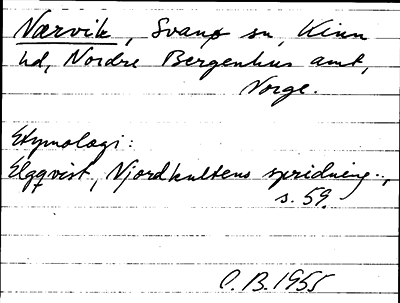 Nærvik, Svanø sn, Kinn
hd, Nordre Bergenhus amt,
Norge.
Etymologi:
Elgqvist, Njordkultens spridning.,
s. 59.
O. B. 1955